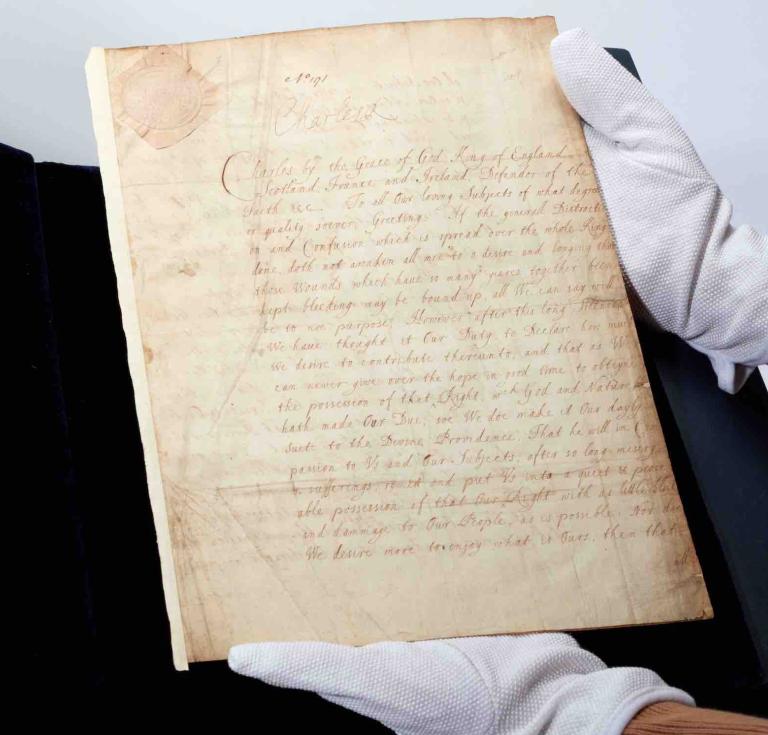 No 191
Charles R
Charles by the Grace of God King of England
Scotland, France and Ireland, Defendor of the
Faith &c. To all Our loving Subjects of what degree
or quality soever, Greeting. If the generall Distracti
on and Confusion which is spread over the whole King
dome, doth not awaken all men to a desire and longing that
those Wounds which have so many yeares together been
kept bleeding may be bound up, all We can say will
be to no purpose, However after this long
We have thought it Our Duty to Declare how much
We desire to contribute thereunto, and that as We
can never give over the hope in good time to obteyne
the possession of that Right, wch God and Nature
hath made Our Due, soe We doe make it Our dayly
Suite to the Devine Providence, That he will in Com
passion to Vs and Our Subjects, after so long misery
& sufferings, and put Vs into a quiet & peace
able possession of that Our Right with as little
and dammage to Our People, as is possible. Nor doe
We desire more to enjoy what is Ours, then that
all